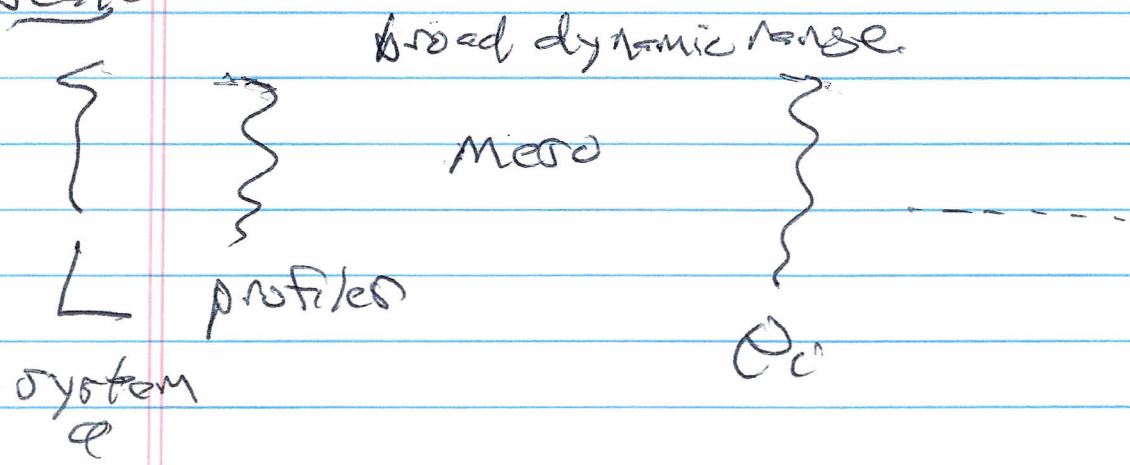 broad dynamic range
Meso
L
profiles
ρi
system